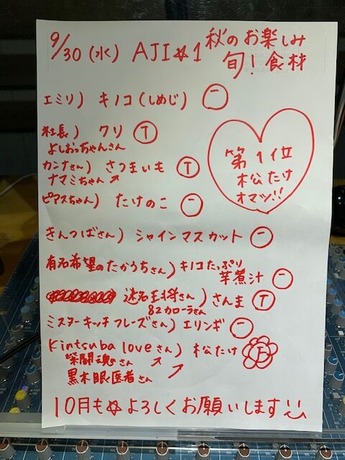 9/30(水) AJI☆1 秋のお楽しみ
旬!食材
エミリ) キノコ(しめじ) ㊀
社長) クリ Ⓣ
よしおっちゃんさん
カンナさん) さつまいも Ⓣ
ナマミちゃん
ピマスちゃん) たけのこ ㊀
きんつばさん) シャインマスカット ㊀
有名希望のたかうちさん) キノコたっぷり
芋煮汁 ㊀
さん) さんま Ⓣ
82カローラさん
ミスターキッチフレーズさん) エリンギ ㊀
Kintsuba loveさん) 松たけ
さん
黒木眼医者さん
第1位
松たけ
オマツ!!
10月も よろしくお願いします